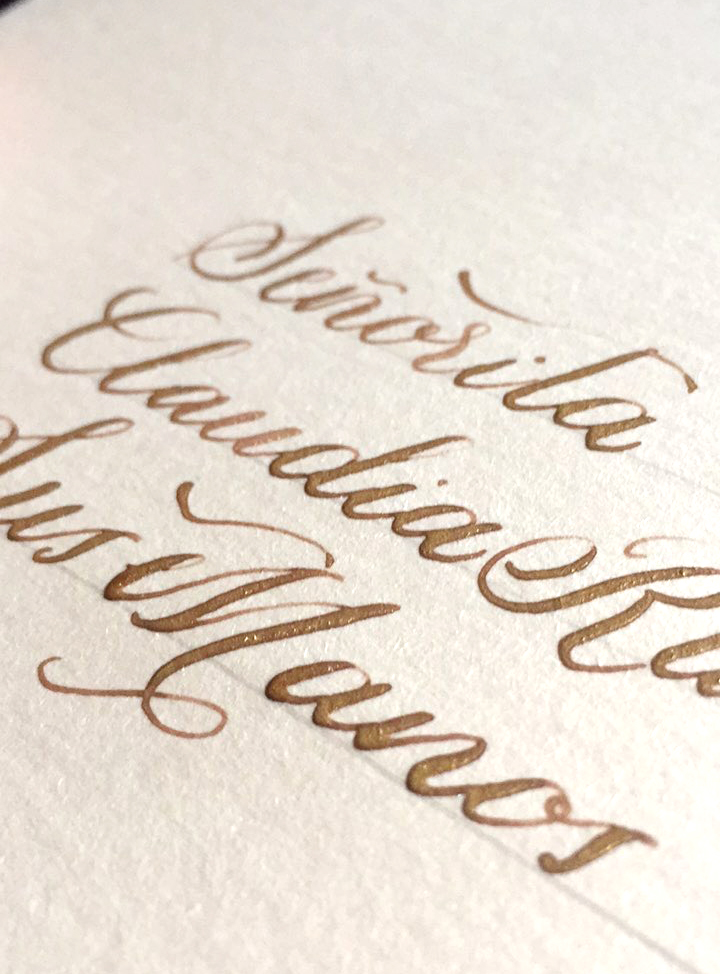 Señorita
Claudia
Sus Manos